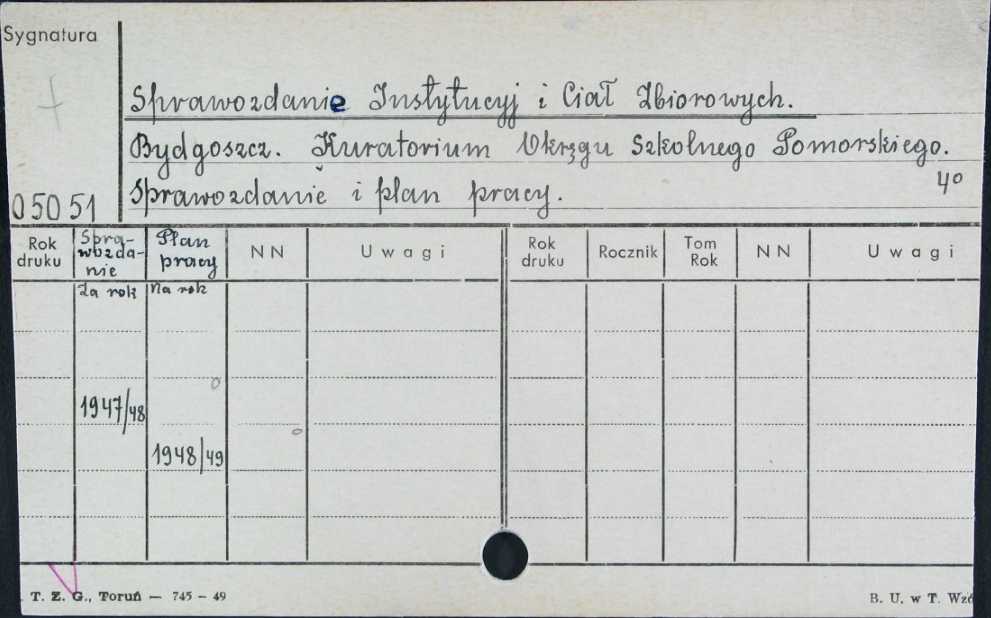 Sygnatura
Sprawozdanie Instytucyj i Ciał Zbiorowych.
Bydgoszcz. Kuratorium Okręgu Szkolnego Pomorskiego.
Sprawozdanie i plan pracy. 4°
05051
Rok druku Sprawozdanie Plan pracy NN Uwagi Rok druku Rocznik Tom Rok NN Uwagi
Za rok Na rok
1947/48
1948/49
T. Z. G., Toruń — 745 – 49 B. U. w T. Wzó